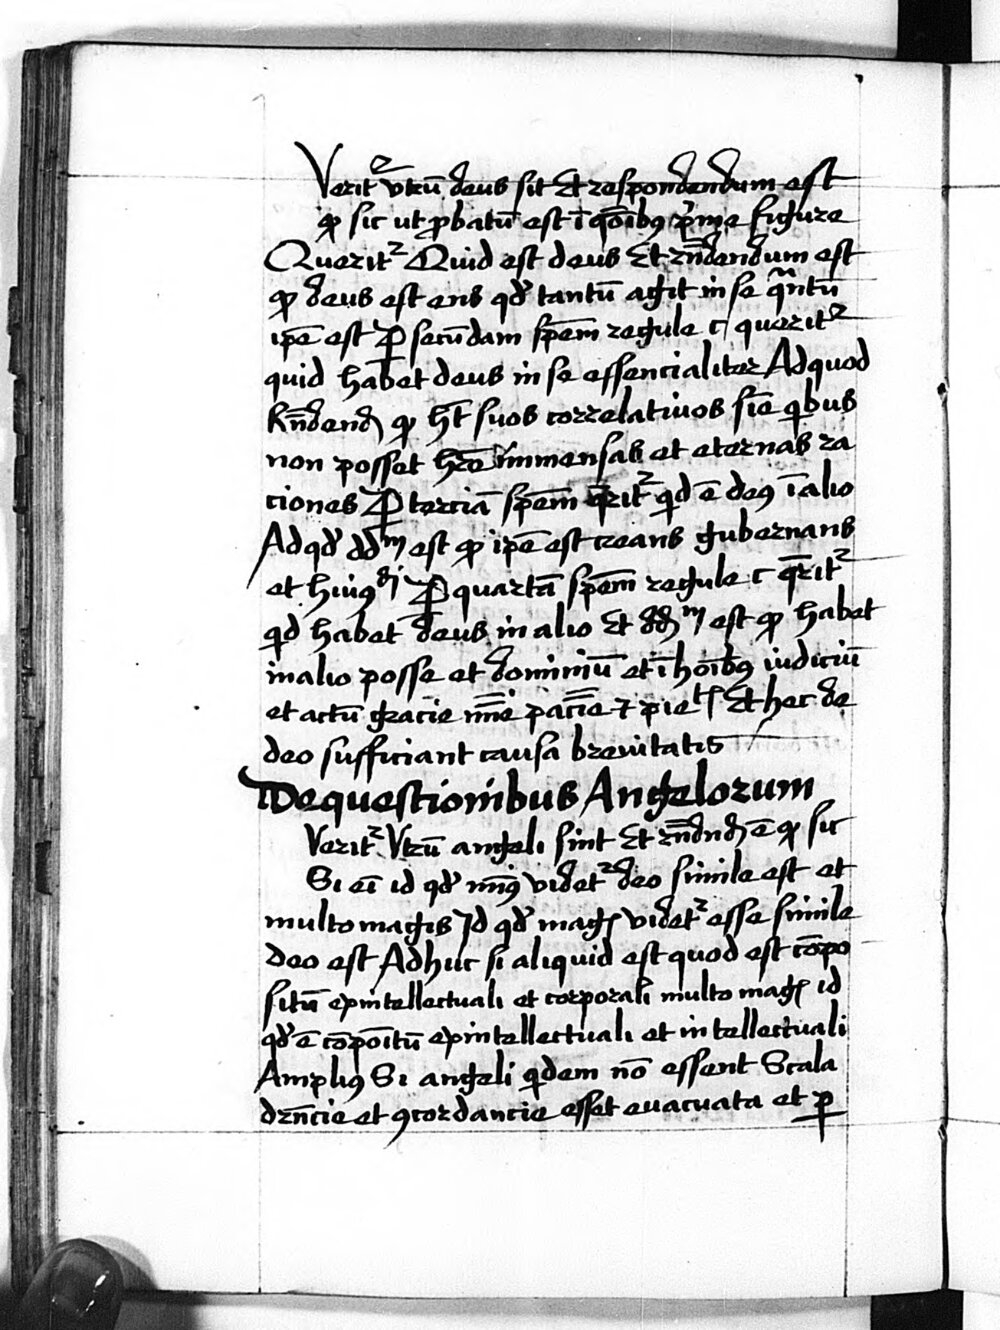 Uerit² vtrū deus sit Et respondendum est
ꝙ sic ut ꝓbatū est ī q̄oībꝯ p̄me figure
Querit² Quid est deus Et rn̄dendum est
ꝙ deus est ens qd' tantū agit in se qͣntū
ip̄e est Ꝑ secūdam sp̄em regule c querit²
quid habet deus in se essencialiter Ad quod
Rn̄dend ꝙ ht̄ suos correlatiuos siē qͥbus
non posset hr̄e immensas et eternas ra
ciones Ꝑ terciā sp̄em q̄rit² qͥd ē deꝯ ī alio
Ad qd' dd̄m est ꝙ ip̄e est creans gubernans
et huiꝯdi Ꝑ quartā sp̄em regule c q̄rit²
qͥd habet deus in alio Et dd̄m est ꝙ habet
in alio posse et dominiū et ī hoībꝯ iudiciū
et actū gracie mīe paciē ⁊ pietꝭ Et hec de
deo sufficiant causa breuitatis
De questionibus Angelorum
Uerit² Utrū angeli sint Et rn̄dnd ē ꝙ sic
Si eī id qd' minꝯ videt² deo simile est et
multo magis Id qd' magꝭ videt² esse simile
deo est Adhuc si aliquid est quod est cōpo
sitū ep intellectuali et corporali multo magꝭ id
qd' ē cōpoītū ep intellectuali et intellectuali
Ampliꝯ Si angeli qͥdem nō essent Scala
drn̄cie et ꝯcordancie esset euacuata et ꝑ